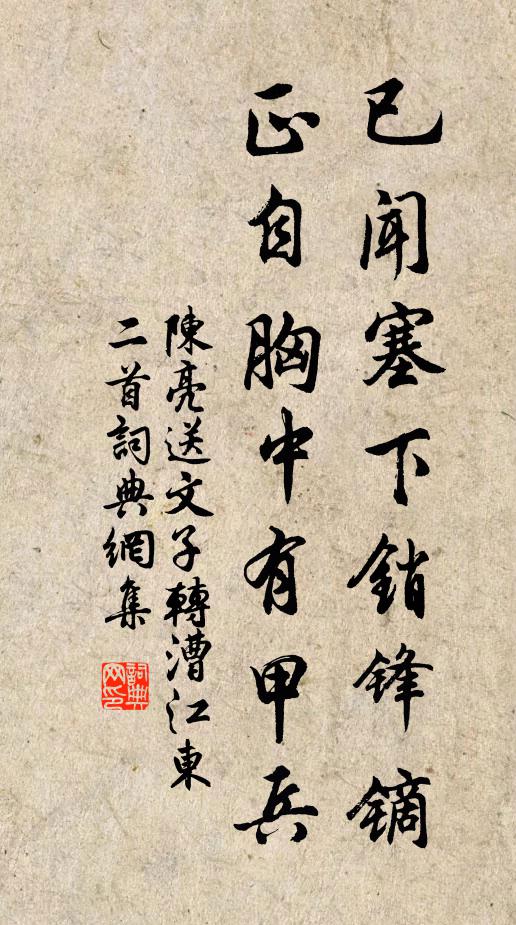 已聞塞下銷锋镝
正自胸中有甲兵
陳亮送文子轉漕江東
二首詞典網集
詞典网印